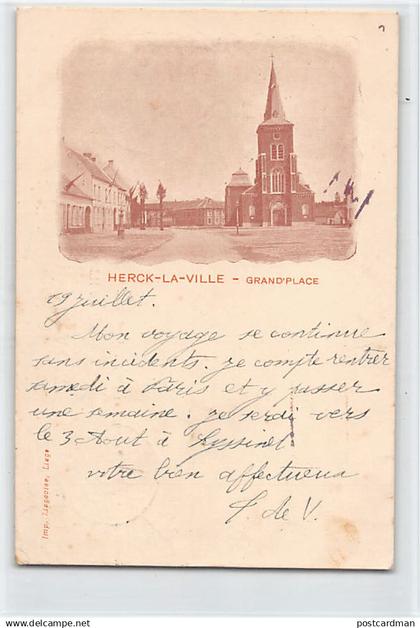 HERCK-LA-VILLE - GRAND'PLACE
19 juillet.
Mon voyage se continue
sans incidents. je compte rentrer
samedi à Paris et y passer
une semaine. je serai vers
le 3 Aout à
votre bien affectueux
de V.
Imp. Liégeoise, Liége
delcampe.net
postcardman